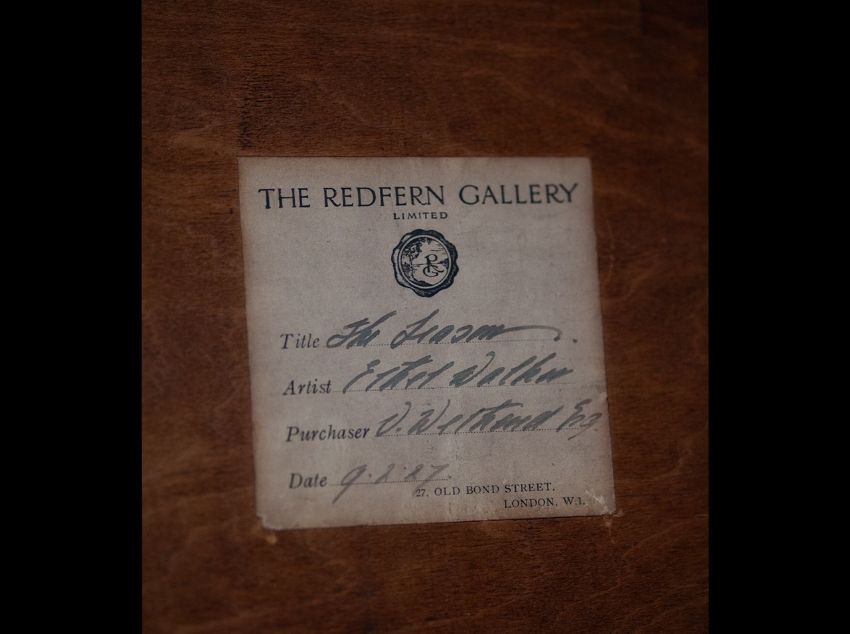 THE REDFERN GALLERY
LIMITED
RG
Title The Season.
Artist Ethel Walker
Purchaser V. Esq
Date 9.2.27.
27, OLD BOND STREET,
LONDON, W.1.